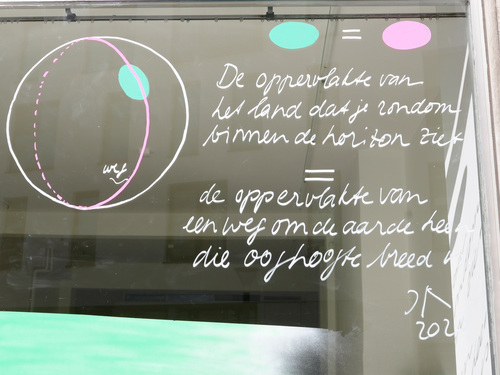 =
De oppervlakte van
het land dat je rondom
binnen de horizon ziet
=
de oppervlakte van
een weg om de aarde heen
die ooghoogte breed
weg